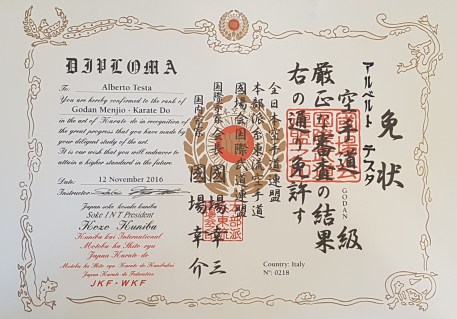 DIPLOMA
To: Alberto Testa
You are hereby confirmed to the rank of
Godan Menjio - Karate Do
in the art of Karate do in recognition of
the great progress that you have made by
your diligent study of the art.
It is our wish that you will endeavor to
attain a higher standard in the future.
Date: 12 November 2016
Instructor
Japan soke kosaku kuniba
Soke INT President
Kozo Kuniba
Kuniba kai International
Motobu ha Shito ryu
Japan Karate do
Motobu ha Shito ryu Karate do Kunibakai
Japan Karate do Federation
JKF - WKF
免状
アルベルト テスタ
空手道 級
GODAN
厳正な審査の結果
右の通り免許す
全日本空手道連盟
本部派糸東流空手道
國場会国際空手道連盟
國場幸三
國場幸介
Country: Italy
N°: 0218